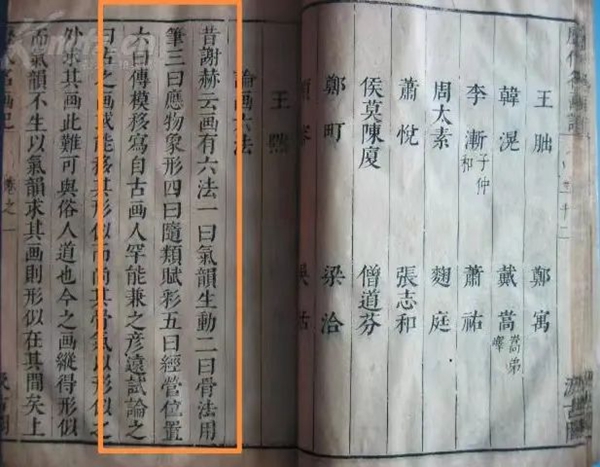 王朏 鄭寓
韓滉 戴嵩 嵩弟嶧
李漸 子仲和 蕭祐
周太素 麹庭
蕭悅 張志和
侯莫陳廈 僧道芬
鄭町 梁洽
王
論画六法
昔謝赫云画有六法一曰氣韻生動二曰骨法用
筆三曰應物象形四曰隨類賦彩五曰經營位置
六曰傳模移寫自古画人罕能兼之彥遠試論之
曰古之画或能移其形似而尚其骨氣以形似之
外求其画此難可與俗人道也今之画縱得形似
而氣韻不生以氣韻求其画則形似在其間矣上
名画記 卷之一